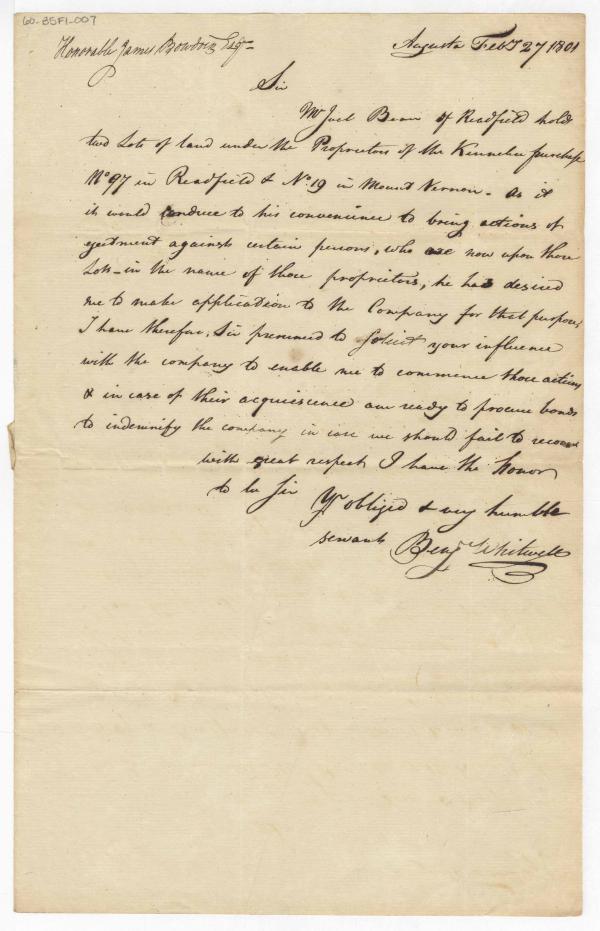 60-85F1-007
Honorable James Bowdoin Esqr
Augusta Feby 27 1801
Sir
Mr Joel Bean of Readfield holds
two Lots of land under the Proprietors of the Kennebec purchase
No 97 in Readfield & No 19 in Mount Vernon - as it
it would conduce to his convenience to bring actions of
ejectment against certain persons, who are now upon those
Lots - in the name of those proprietors, he has desired
me to make application to the Company for that purpose,
I have therefore, Sir presumed to solicit your influence
with the company to enable me to commence those actions
& in case of their acquiescence am ready to procure bonds
to indemnify the company in case we should fail to recover
with great respect I have the honor
to be Sir Yr obliged & very humble
servant Benj Whitwell